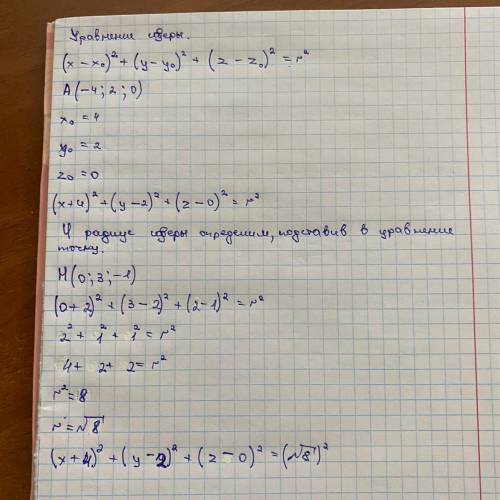 Уравнение сферы.
(x-x₀)² + (y-y₀)² + (z-z₀)² = r²
A(-4; 2; 0)
x₀ = 4
y₀ = 2
z₀ = 0
(x+4)² + (y-2)² + (z-0)² = r²
Ч радиус сферы определим, подставив в уравнение
точку.
H(0; 3; -1)
(0+2)² + (3-2)² + (2-1)² = r²
2² + 1² + 1² = r²
4 + 2 + 2 = r²
r² = 8
r = √8
(x+4)² + (y-2)² + (z-0)² = (√8)²